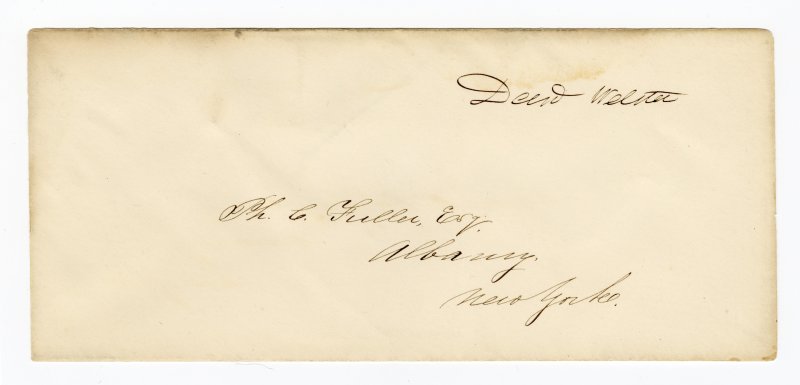 Danl Webster
Ph. C. Fuller, Esq.
Albany.
New York.